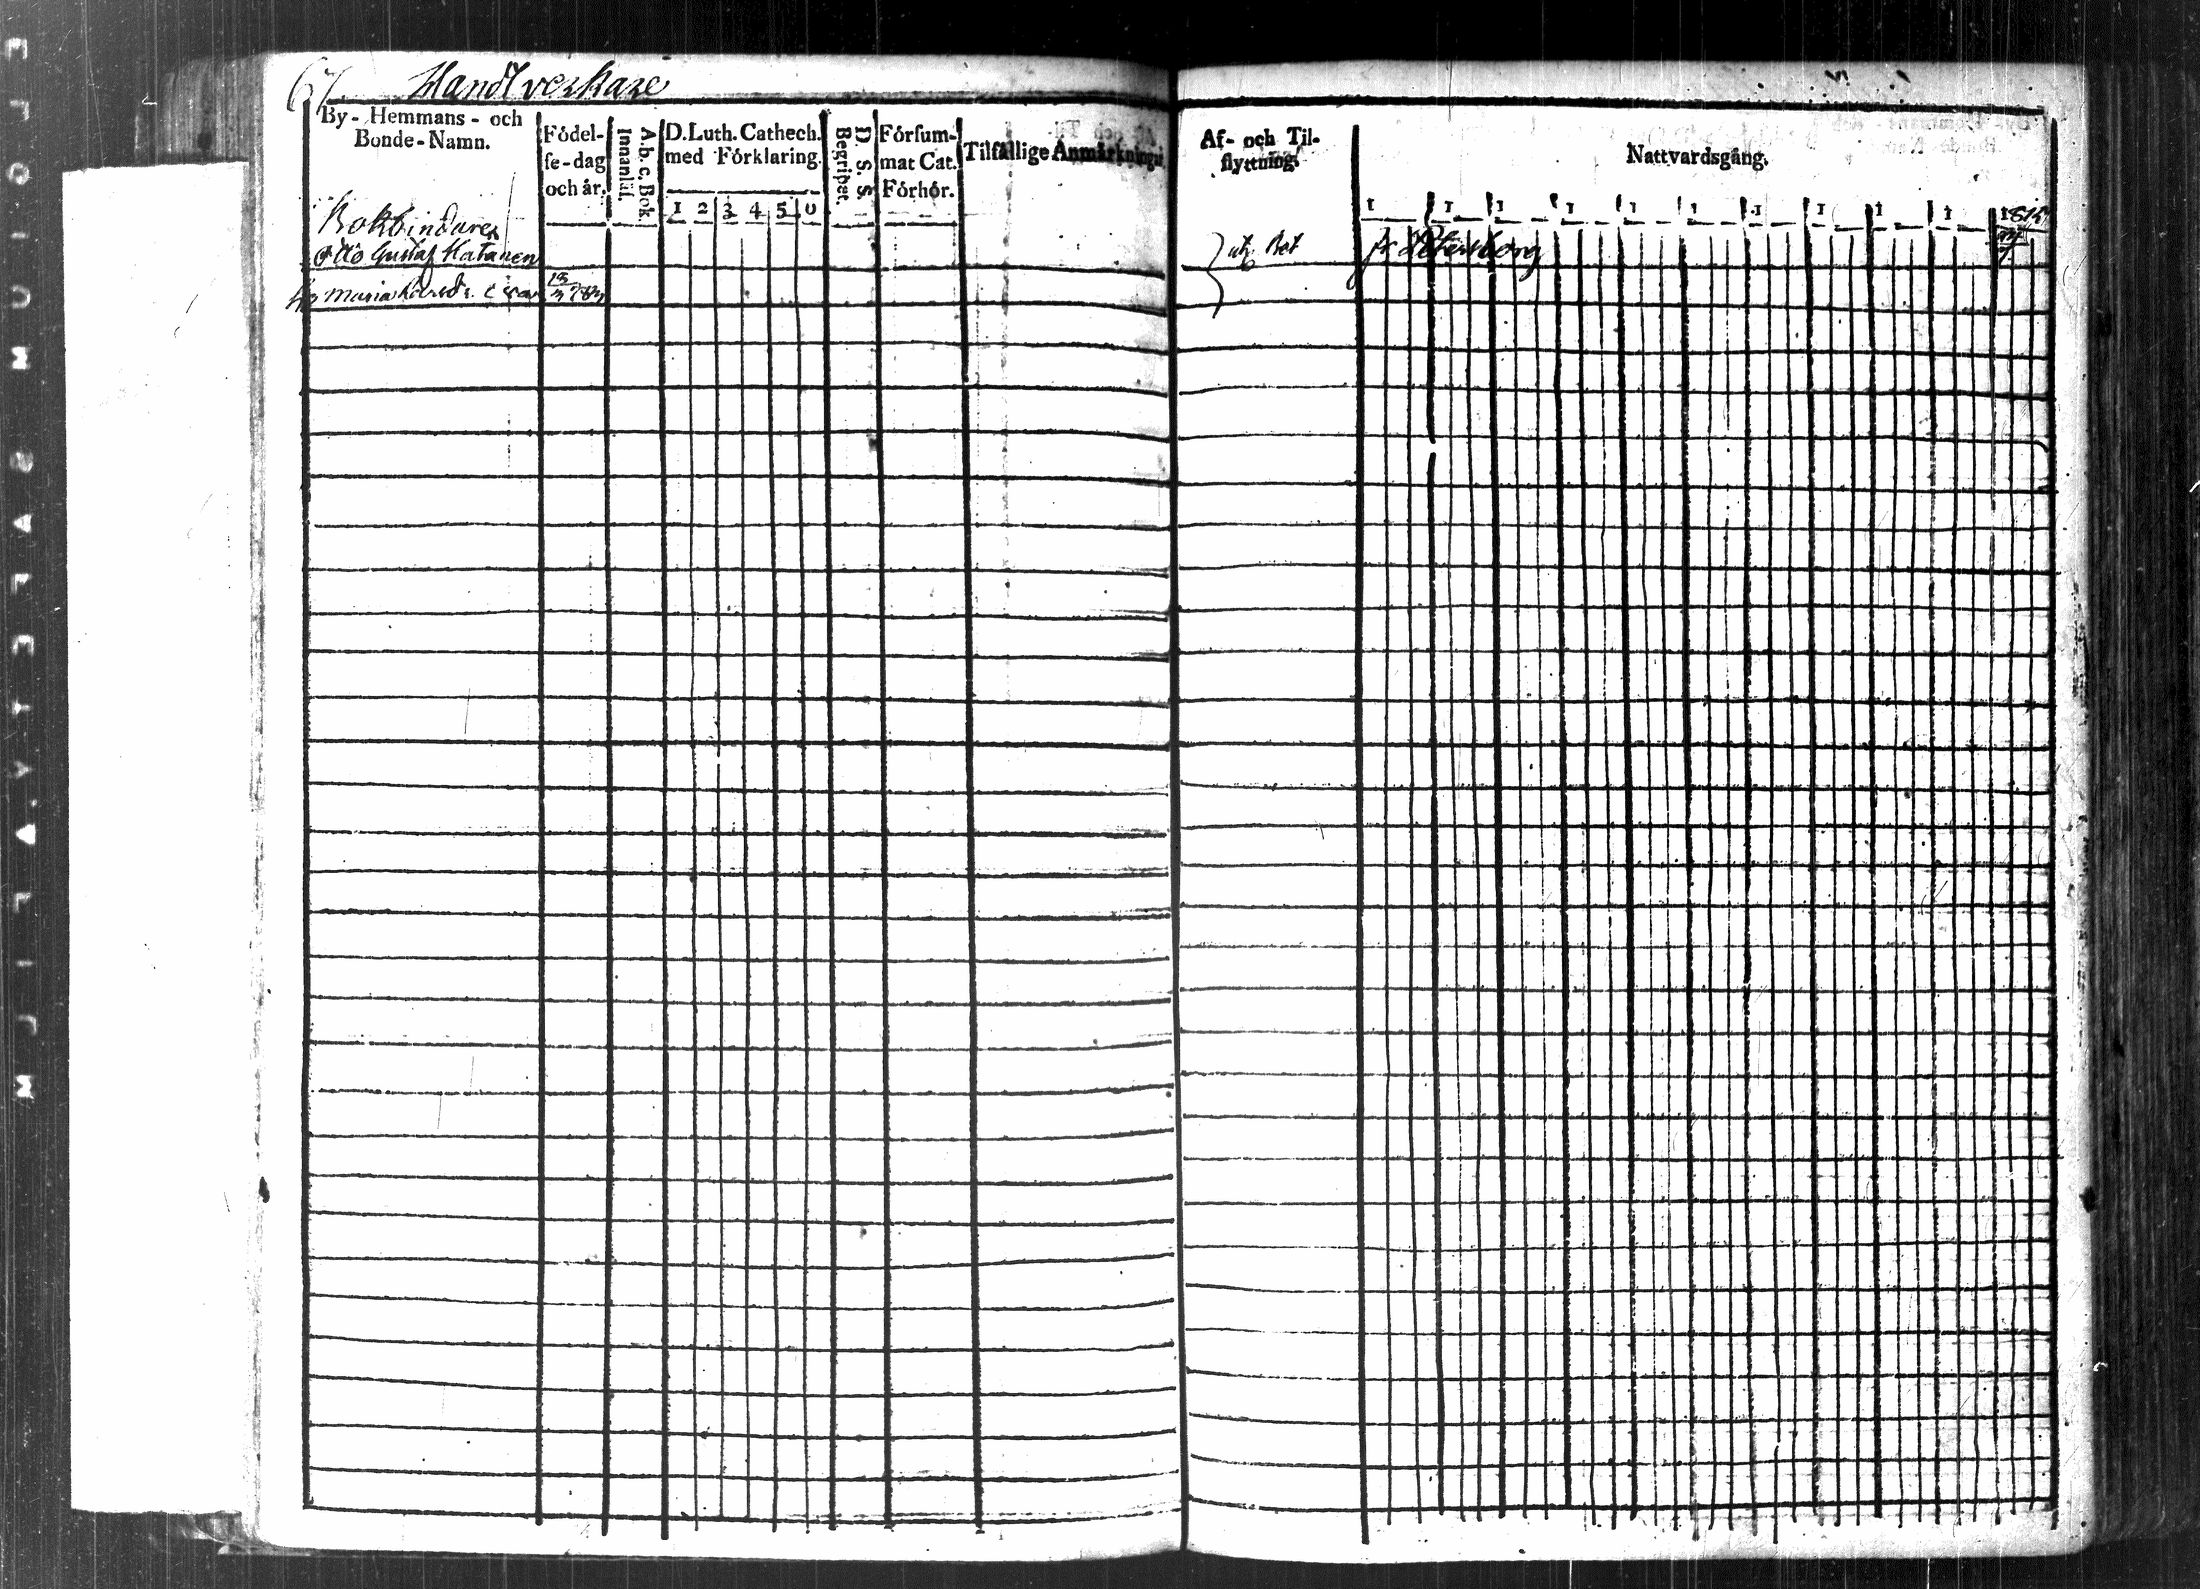 67. Handtverkare
By- Hemmans- och
Bonde-Namn.
Födel-
se-dag
och år.
A.b.c. Bok.
Innanläs.
D. Luth. Cathech.
med Förklaring.
1 2 3 4 5 0
D. S. S.
Begripet.
Försum-
mat Cat.
Förhör.
Tilfällige Anmärkningar
Bokbindaren
Otto Gustaf Hatanen
hu Maria
Af- och Til-
flyttning.
Nattvardsgång.
1 1 1 1 1 1 1 1 1 1 1815
utg Bet fr Petersborg